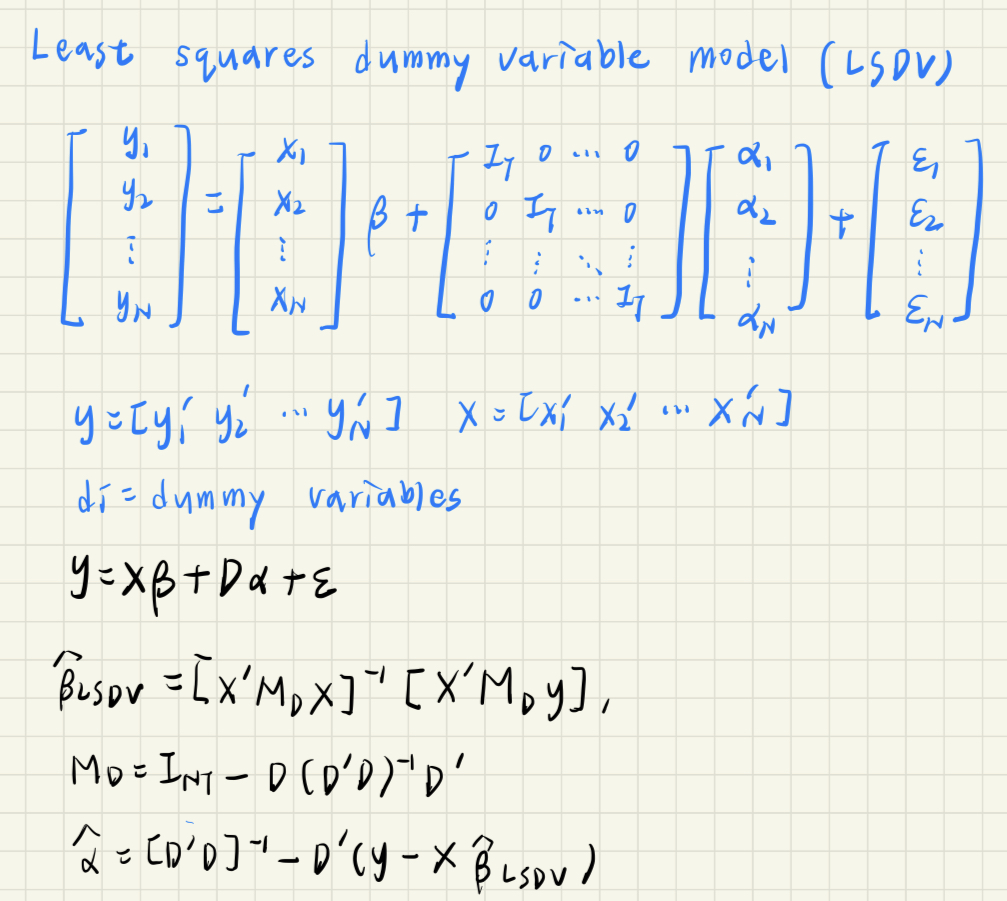 Least squares dummy variable model (LSDV)
[y₁ y₂ ⋮ y_N] = [X₁ X₂ ⋮ X_N] β + [I_T 0 ⋯ 0; 0 I_T ⋯ 0; ⋮ ⋮ ⋱ ⋮; 0 0 ⋯ I_T] [α₁ α₂ ⋮ α_N] + [ε₁ ε₂ ⋮ ε_N]
y = [y₁′ y₂′ ⋯ y_N′] X = [X₁′ X₂′ ⋯ X_N′]
di = dummy variables
y = Xβ + Dα + ε
β̂_LSDV = [X′M_D X]⁻¹ [X′M_D y],
M_D = I_NT − D(D′D)⁻¹D′
α̂ = [D′D]⁻¹ − D′(y − X β̂_LSDV)